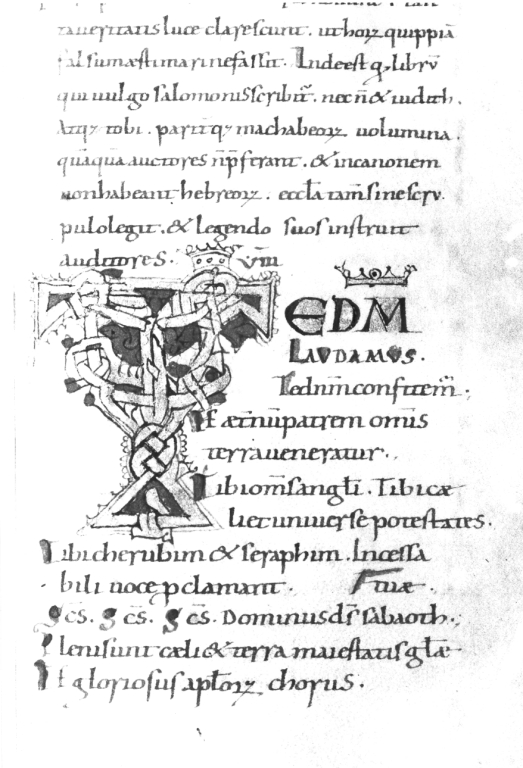 taueritatis luce clarescunt. uthoꝝ quippiā
falsum æstimarinefassit. Indeest ꝙ librū
qui uulgo salomonis scribit᷑. nec n̄ & iudith.
Atqꝫ tobi. parit᷑qꝫ machabeoꝝ uolumina.
quāquā auctores n̄ pferant. & incanonem
nonhabeant hebreoꝝ. eccl̄a tam̄ sinescru
pulolegit. & legendo suos instruit
auditores. VIII
TEDM
LAUDAMUS.
Tednm̄ confitem᷑.
Te æt̄nū patrem omīs
terra ueneratur.
Tibi om̄s angl̄i. Tibi cæ
li et uniuerse potestates.
Tibi cherubim & seraphim. Incessa
bili uoce pclamant. tuæ.
Scs̄. Scs̄. Scs̄. Dominus ds̄ sabaoth.
Pleni sunt cæli & terra maiestatis gl̄æ
Te gloriosus apl̄oꝝ chorus.